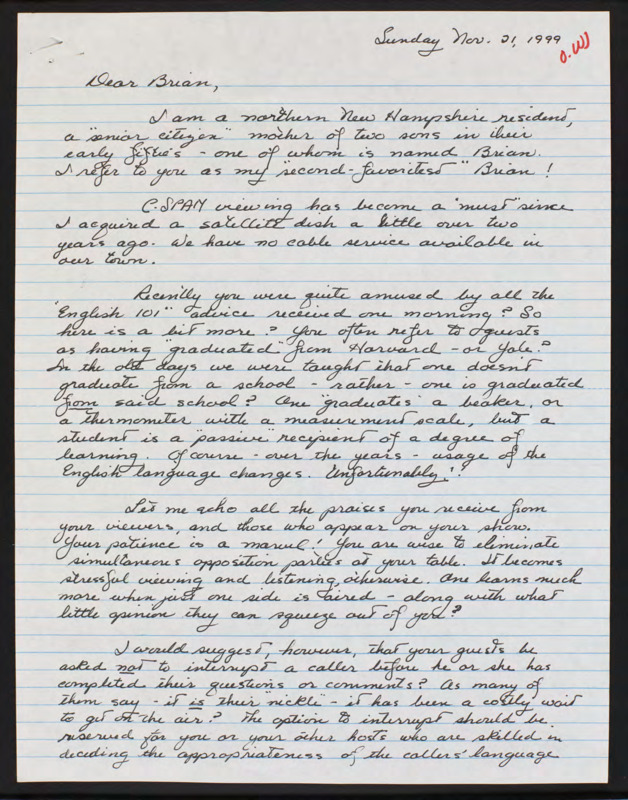 Sunday Nov. 21, 1999
O.W)
Dear Brian,
I am a northern New Hampshire resident,
a "senior citizen" mother of two sons in their
early fifties - one of whom is named Brian.
I refer to you as my "second-favoritest" Brian!
C-SPAN viewing has become a "must" since
I acquired a satellite dish a little over two
years ago. We have no cable service available in
our town.
Recently you were quite amused by all the
"English 101" advice received one morning? So
here is a bit more? You often refer to guests
as having "graduated" from Harvard - or Yale?
In the old days we were taught that one doesn't
graduate from a school - rather - one is graduated
from said school? One "graduates" a beaker, or
a thermometer with a measurement scale, but a
student is a "passive" recipient of a degree of
learning. Of course - over the years - usage of the
English language changes. Unfortunately!!
Let me echo all the praises you receive from
your viewers, and those who appear on your show.
Your patience is a marvel! You are wise to eliminate
simultaneous opposition parties at your table. It becomes
stressful viewing and listening, otherwise. One learns much
more when just one side is aired - along with what
little opinion they can squeeze out of you?
I would suggest, however, that your guests be
asked not to interrupt a caller before he or she has
completed their questions or comments? As many of
them say - it is their "nickle" - it has been a costly wait
to get on the air? The option to interrupt should be
reserved for you or your other hosts who are skilled in
deciding the appropriateness of the callers' language